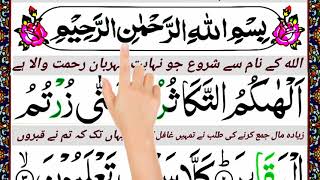 بِسْمِ اللهِ الرَّحْمٰنِ الرَّحِيْمِ
اللہ کے نام سے شروع جو نہایت مہربان رحمت والا ہے
اَلْهٰىكُمُ التَّكَاثُرُ زُرْتُمُ
زیادہ مال جمع کرنے کی طلب نے تمہیں غافل یہاں تک کہ تم نے قبروں
الْمَقَابِرَ كَلَّا تَعْلَمُوْنَ